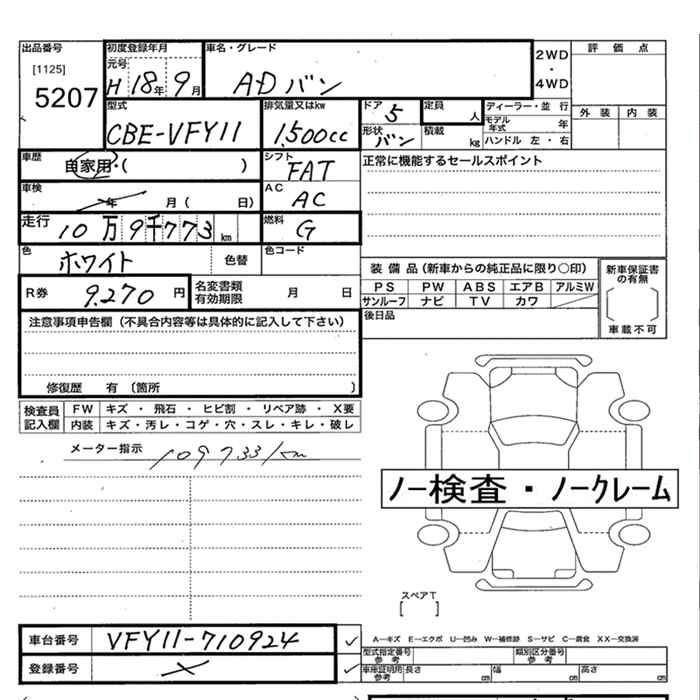 出品番号 初度登録年月 車名・グレード 2WD・4WD 評価点
[1125] 元号
5207 H 18年 9月 ADバン
外装 内装
型式 排気量又はkw ドア 5 定員 人 ディーラー・並行
モデル年式 年
CBE-VFY11 1,500cc 形状 バン 積載 kg ハンドル 左・右
車歴 自家用・( ) シフト FAT 正常に機能するセールスポイント
車検 年 月 ( 日) AC AC
走行 10万9千773km 燃料 G
色 ホワイト 色替 色コード
装備品(新車からの純正品に限り〇印) 新車保証書の有無
R券 9,270円 名変書類有効期限 月 日 PS PW ABS エアB アルミW
サンルーフ ナビ TV カワ
車載不可
注意事項申告欄(不具合内容等は具体的に記入して下さい) 後日品
修復歴 有 〔箇所 〕
検査員記入欄 FW キズ・飛石・ヒビ割・リペア跡・X要
内装 キズ・汚レ・コゲ・穴・スレ・キレ・破レ
メーター指示 109733km
ノー検査・ノークレーム
スペアT
[ ]
車台番号 VFY11-710924 A―キズ E―エクボ U―凹み W―補修跡 S―サビ C―腐食 XX―交換済
型式指定番号参考 類別区分番号参考
登録番号 車庫証明用参考 長さ cm 幅 cm 高さ cm